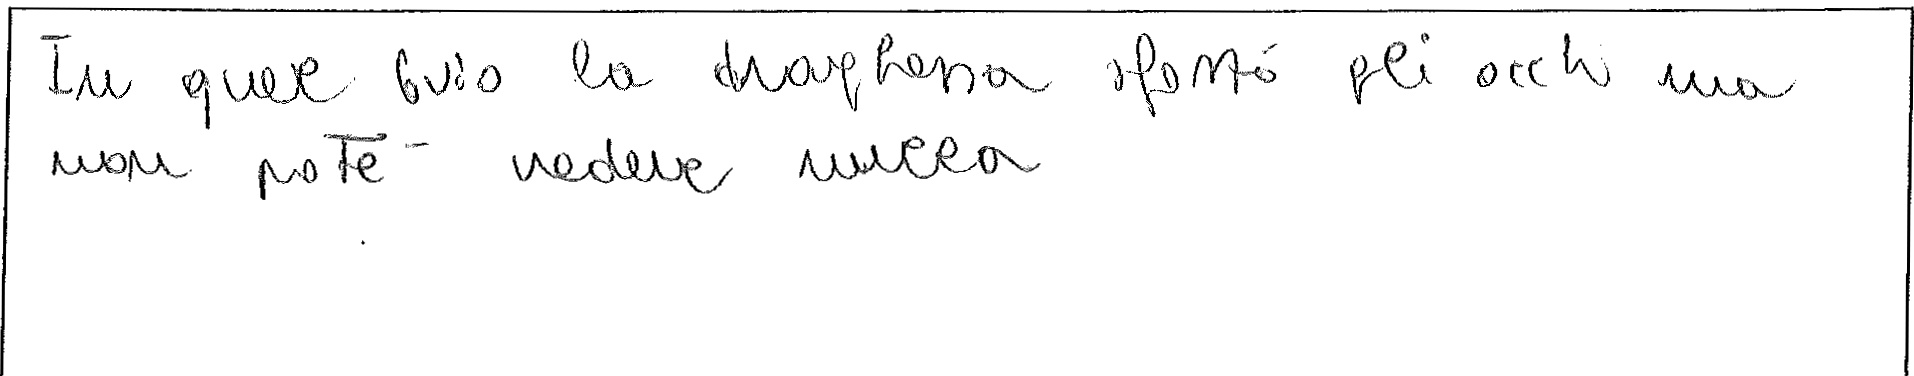 In quel buio la draghessa spostò gli occhi ma
non poté vedere nulla